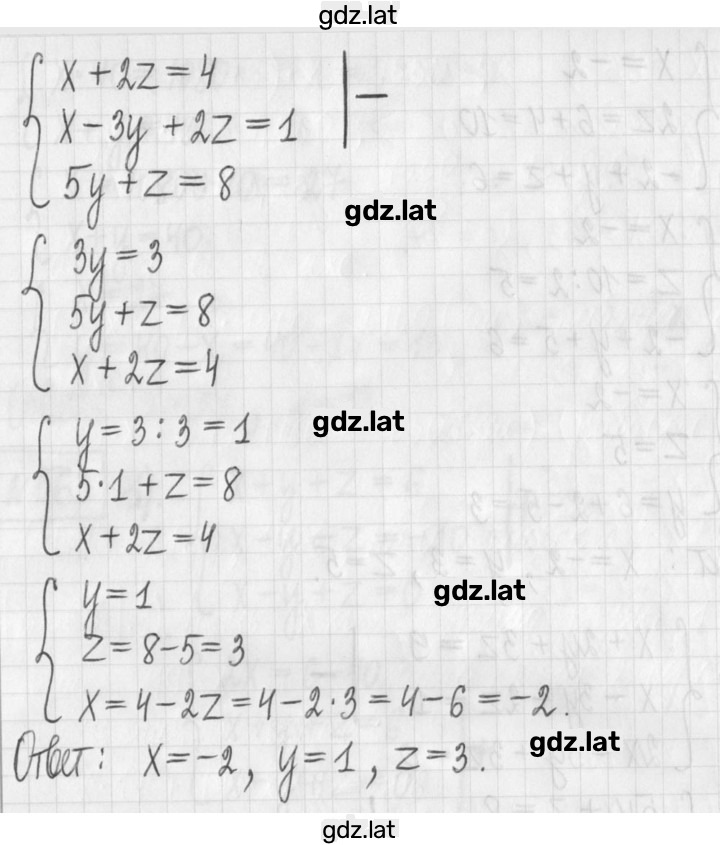 gdz.lat
x + 2z = 4
x - 3y + 2z = 1 | -
5y + z = 8
gdz.lat
3y = 3
5y + z = 8
x + 2z = 4
gdz.lat
y = 3 : 3 = 1
5·1 + z = 8
x + 2z = 4
gdz.lat
y = 1
z = 8 - 5 = 3
x = 4 - 2z = 4 - 2·3 = 4 - 6 = -2.
gdz.lat
Ответ: x = -2, y = 1, z = 3.
gdz.lat